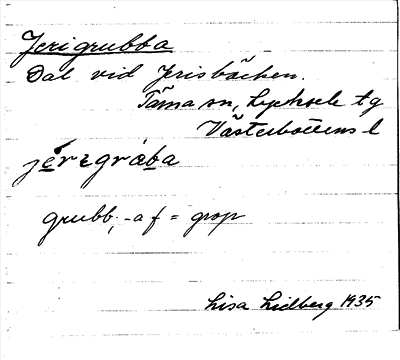 Jerigrubba
Dal vid Jerisbäcken.
Tärna sn, Lycksele tg
Västerbottens l
grubb, -a f = grop
Lisa Lidberg 1935